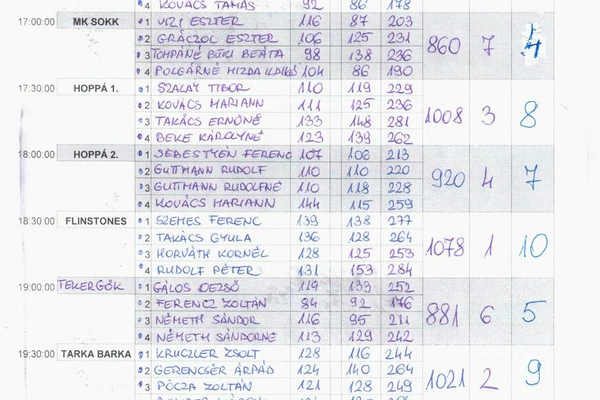 4 KOVÁCS TAMÁS 92 86 178
17:00:00 MK SOKK 1 VIZI ESZTER 116 87 203
2 GRÁCZOL ESZTER 106 125 231 860 7 4
3 BEÁTA 98 138 236
4 POLGÁRNÉ MIZDA ILDIKÓ 104 86 190
17:30:00 HOPPÁ 1. 1 SZALAY TIBOR 110 119 229
2 KOVÁCS MARIANN 111 125 236 1008 3 8
3 TAKÁCS ERNŐNÉ 133 148 281
4 BEKE KÁROLYNÉ 123 139 262
18:00:00 HOPPÁ 2. 1 SEBESTYÉN FERENC 107 106 213
2 GUTTMANN RUDOLF 110 110 220 920 4 7
3 GUTTMANN RUDOLFNÉ 110 118 228
4 KOVÁCS MARIANN 144 115 259
18:30:00 FLINSTONES 1 SZEMES FERENC 139 138 277
2 TAKÁCS GYULA 136 128 264 1078 1 10
3 HORVÁTH KORNÉL 128 125 253
4 RUDOLF PÉTER 131 153 284
19:00:00 TEKERGŐK 1 GÁLOS DEZSŐ 119 133 252
2 FERENCZ ZOLTÁN 84 92 176 881 6 5
3 NÉMETH SÁNDOR 116 95 211
4 NÉMETH SÁNDORNÉ 113 129 242
19:30:00 TARKA BARKA 1 KRUCZLER ZSOLT 128 116 244
2 GERENCSÉR ÁRPÁD 124 140 264 1021 2 9
3 PÓCZA ZOLTÁN 121 128 249